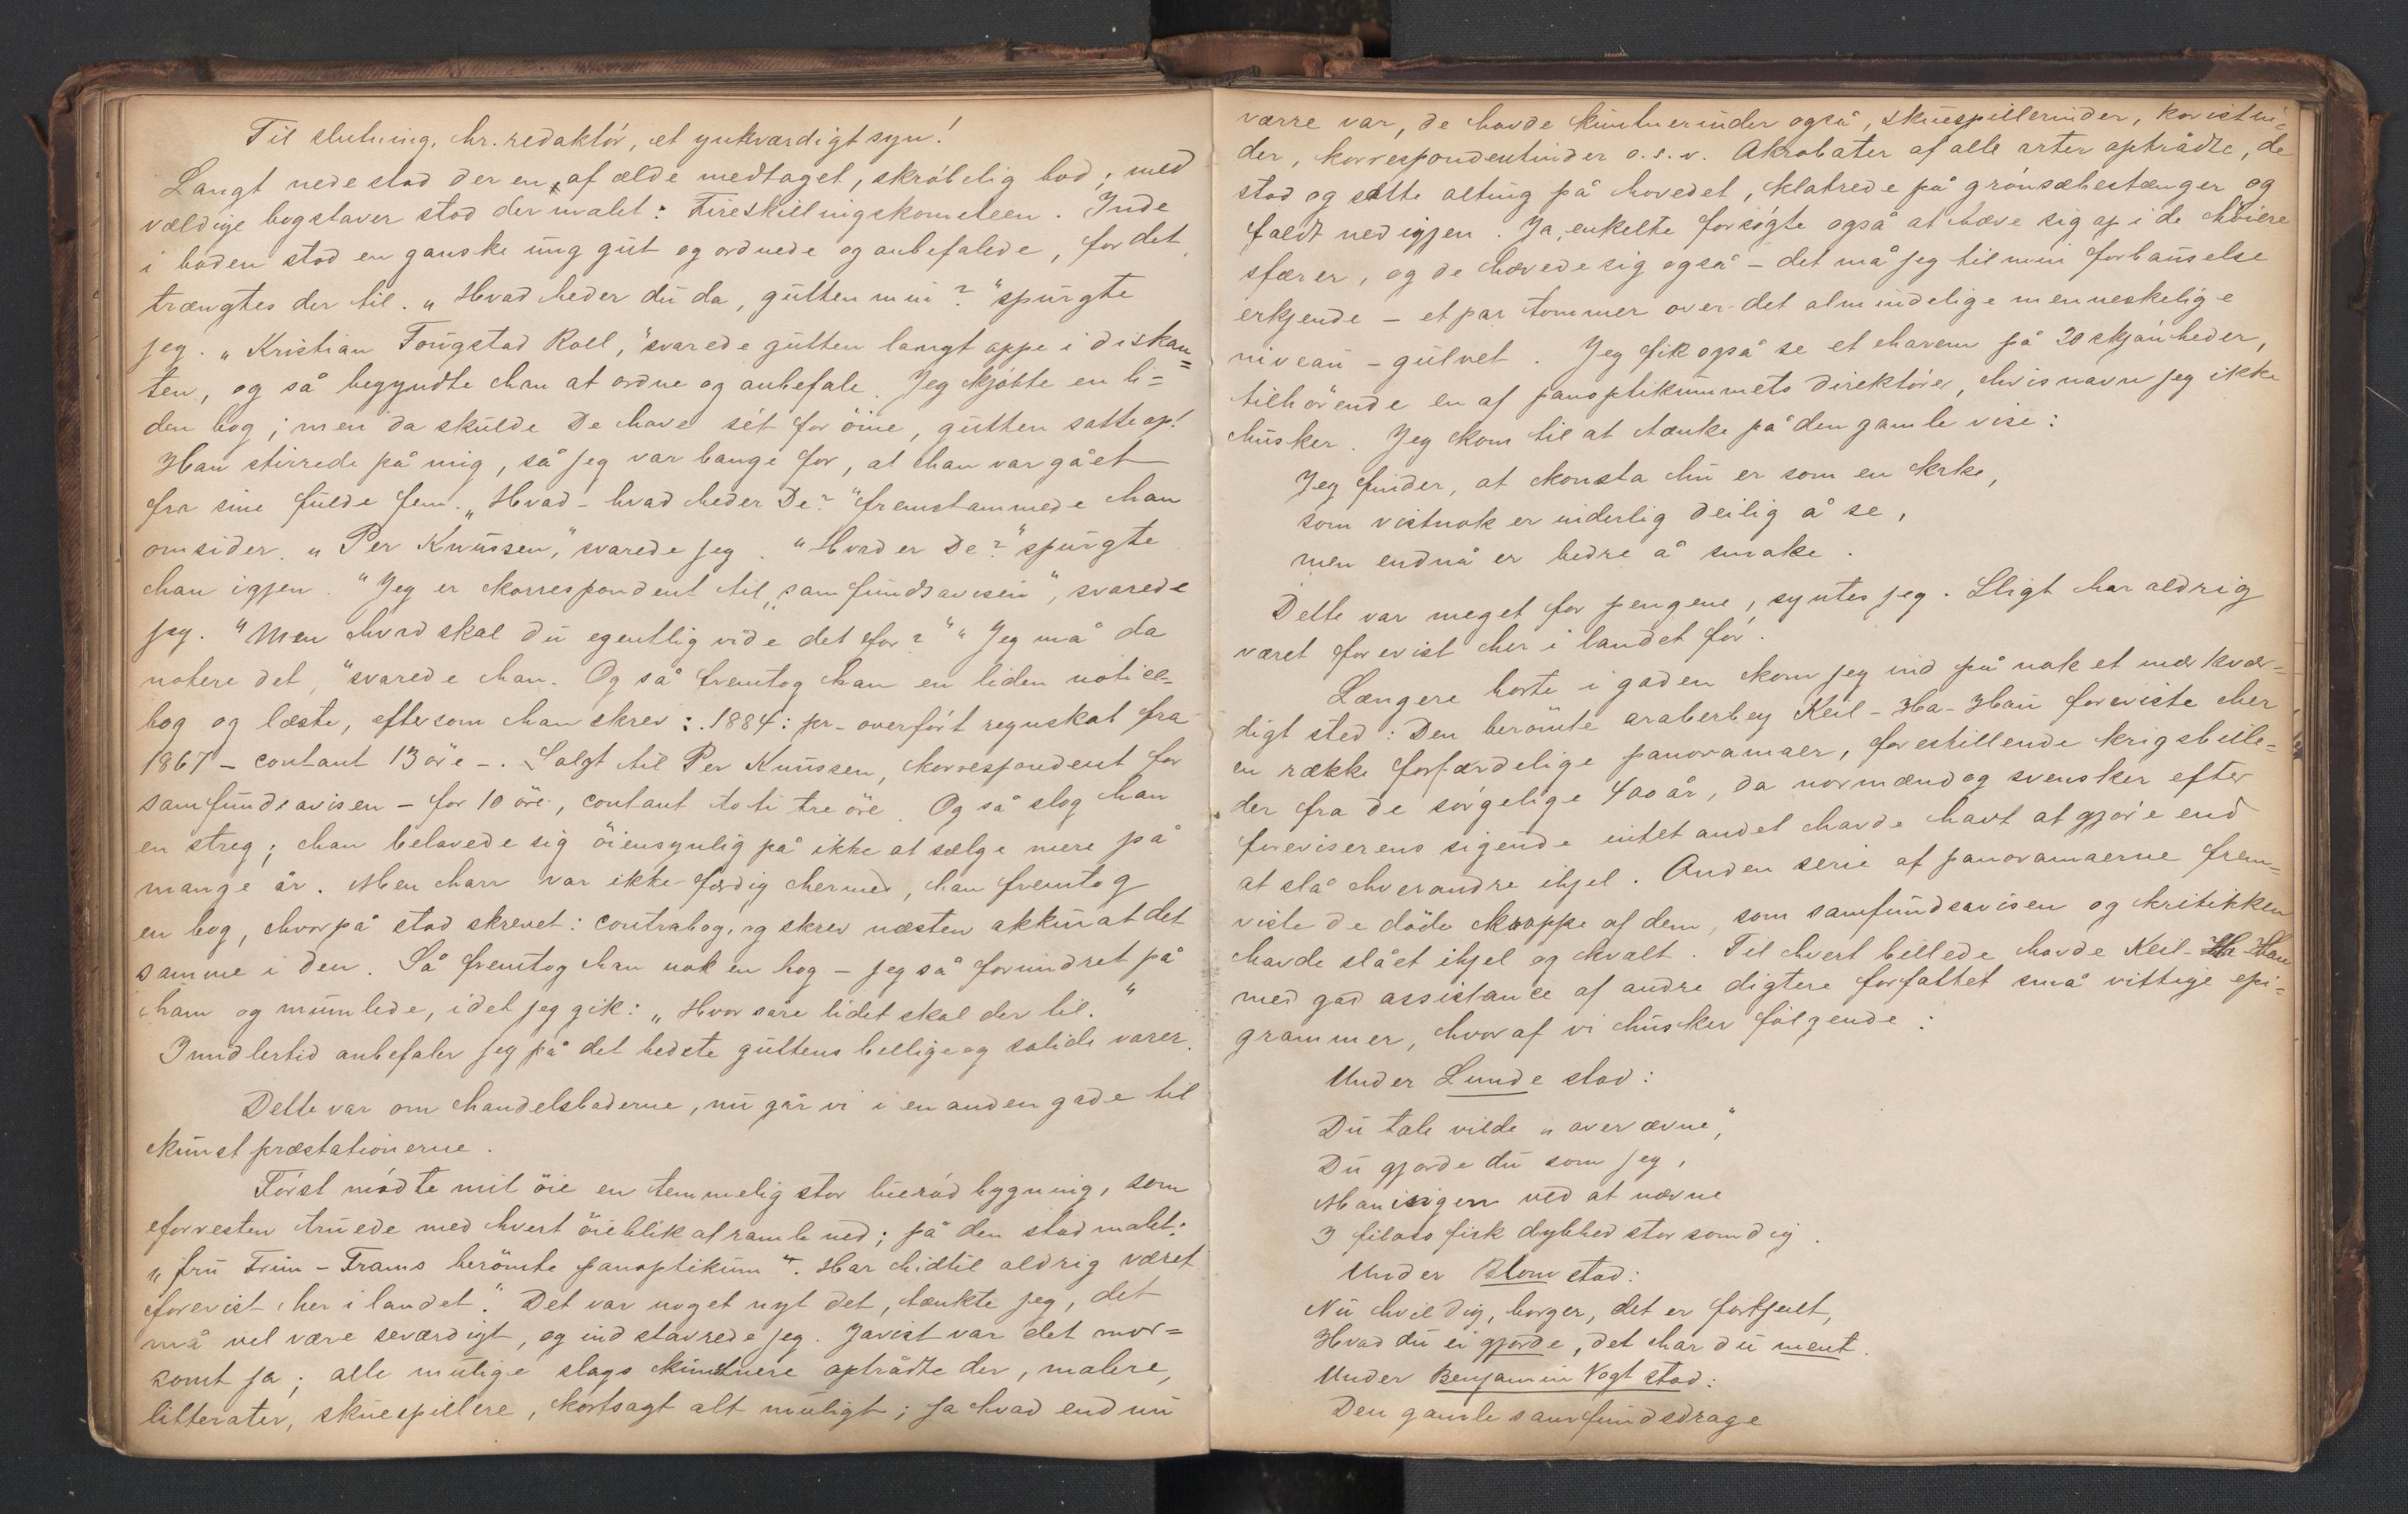 Til slutning, hr. redaktör, et ynkværdigt syn!
Langt nede stod der en, af ælde medtaget, skröbelig bod; med
vældige bogstaver stod der malet: Fireskillingskometeen. Inde
i boden stod en ganske ung gut og ordnede og anbefalede, for det
trængtes der til. "Hvad heder du da, gutten min?" spurgte
jeg. "Kristian Fougstad Roll," svarede gutten langt oppe i diskan=
ten, og så begyndte han at ordne og anbefale. Jeg kjöbte en li=
den bog; men da skulde De have sét for öine, gutten satte op!
Han stirrede på mig, så jeg var bange for, at han var gået
fra sine fulde fem. "Hvad - hvad heder De?" fremstammede han
omsider. "Per Knussen," svarede jeg. "Hvad er De?" spurgte
han igjen. "Jeg er korrespondent til "samfundsavisen", svarede
jeg. "Men hvad skal du egentlig vide det for?" "Jeg må da
notere det," svarede han. Og så fremtog han en liden notice-
bog og læste, eftersom han skrev: 1884: pr. overfört regnskab fra
1867 - contant 13 öre -. Solgt til Per Knussen, korrespondent for
samfundsavisen - for 10 öre, contant to ti tre öre. Og så slog han
en streg; han belavede sig öiensynlig på ikke at sælge mere på
mange år. Men han var ikke færdig hermed, han fremtog
en bog, hvorpå stod skrevet: contrabog, og skrev næsten akkurat det
samme i den. Så fremtog han nok en bog - jeg så forundret på
ham og mumlede, idet jeg gik: "Hvor såre lidet skal der til."
Imidlertid anbefaler jeg på det bedste guttens billige og solide varer.
Dette var om handelsboderne, nu går vi i en anden gade til
kunstpræstationerne.
Först mödte mit öie en temmelig stor bygning, som
forresten truede med hvert öieblik at ramle ned; på den stod malet:
"fru Frim-Frams berömte panoptikum". Har hidtil aldrig været
forevist her i landet." Det var noget nyt det, tænkte jeg, det
må vel være seværdigt, og ind stavrede jeg. Javist var det mor=
somt ja; alle mulige slags kunstnere optrådte der, malere,
litterater, skuespillere, kortsagt alt muligt; ja hvad end nu
værre var, de havde kunstnerinder også, skuespillerinder, koristin=
der, korrespondentinder o.s.v. Akrobater af alle arter optrådte, de
stod og satte alting på hovedet, klatrede på grönsæbestænger og
faldt ned igjen. Ja, enkelte forsögte også at hæve sig op i de höiere
sfærer, og de hævede sig også - det må jeg til min forbauselse
erkjende - et par tommer over det almindelige menneskelige
niveau - gulvet. Jeg fik også se et harem på 20 skjönheder,
tilhörende en af panoptikummets direktörer, hvis navn jeg ikke
husker. Jeg kom til at tænke på den gamle vise:
Jeg finder, at konsta hu er som en kake,
som vistnok er inderlig deilig å se,
men endnå er bedre å smake.
Dette var meget for pengene, syntes jeg. Sligt har aldrig
været forevist her i landet för.
Længere borte i gaden kom jeg ind på nok et mærkvær=
digt sted: Den berömte araberbey Keil-Ha-Hau foreviste her
en række forfærdelige panoramaer, forestillende krigsbille=
der fra de sörgelige 400 år, da normænd og svensker efter
foreviserens sigende intet andet havde havt at gjöre end
at slå hverandre ihjel. Anden serie af panoramaerne frem=
viste de döde kroppe af dem, som samfundsavisen og kritikken
havde slået ihjel og kvalt. Til hvert billede havde Keil-Ha-Hau
med god assistance af andre digtere forfattet små vittige epi=
grammer, hvoraf vi husker fölgende:
Under Lunde stod:
Du tale vilde "over ævne",
Du gjorde du som jeg,
Man ingen ved at nævne
I filosofisk dybhed stor som dig.
Under Blom stod:
Nu hvil dig, borger, det er forkjælt,
Hvad du ei gjorde, det har du ment.
Under Benjamin Vogt stod:
Den gamle samfundsdrage